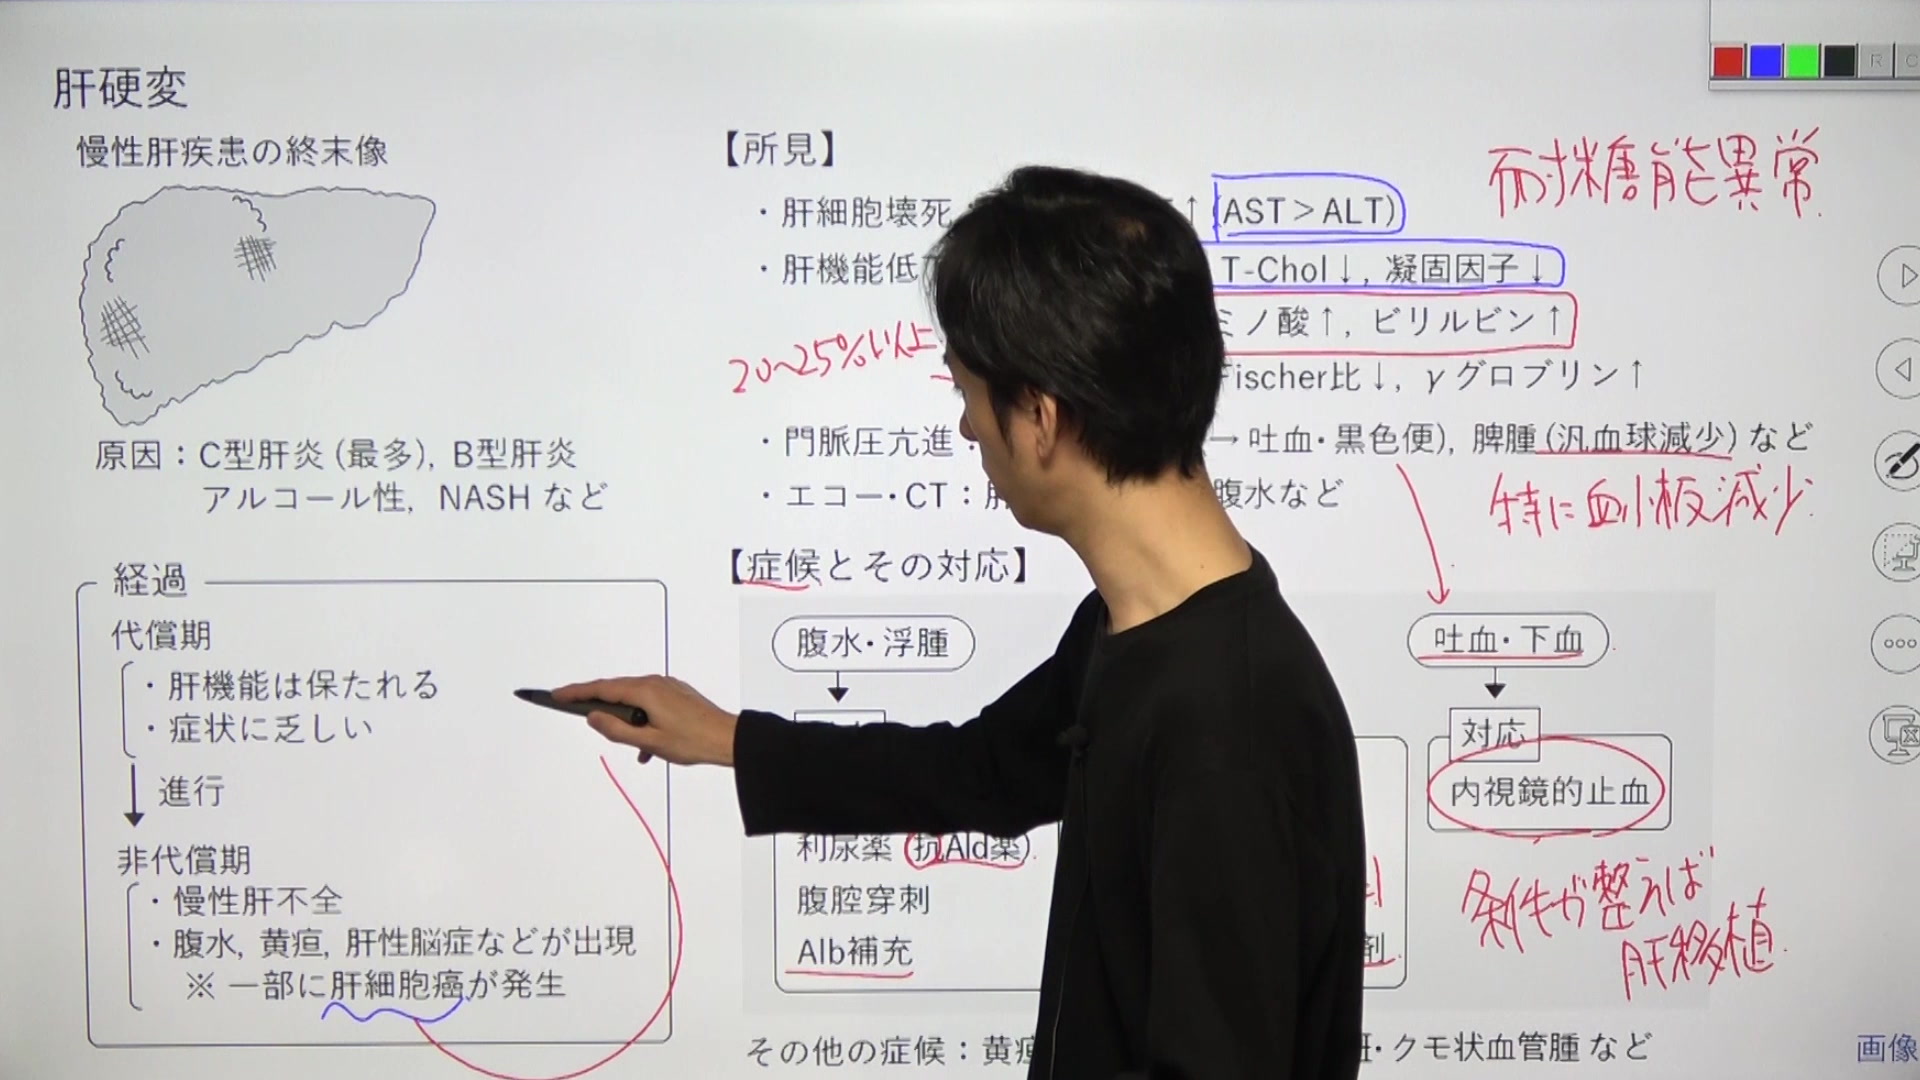 肝硬変
慢性肝疾患の終末像
原因：C型肝炎（最多），B型肝炎
アルコール性，NASH など
経過
代償期
・肝機能は保たれる
・症状に乏しい
進行
非代償期
・慢性肝不全
・腹水，黄疸，肝性脳症などが出現
※ 一部に肝細胞癌が発生
【所見】
・肝細胞壊死 ↑（AST＞ALT）
・肝機能低 T-Chol↓，凝固因子↓
ミノ酸↑，ビリルビン↑
Fischer比↓，γグロブリン↑
20〜25%以上
・門脈圧亢進： → 吐血・黒色便），脾腫（汎血球減少）など
・エコー・CT： 腹水など
耐糖能異常
特に血小板減少
【症候とその対応】
腹水・浮腫
利尿薬（抗Ald薬）
腹腔穿刺
Alb補充
剤
吐血・下血
対応
内視鏡的止血
条件が整えば
肝移植
その他の症候：黄疸 ・クモ状血管腫 など
R
C
画像